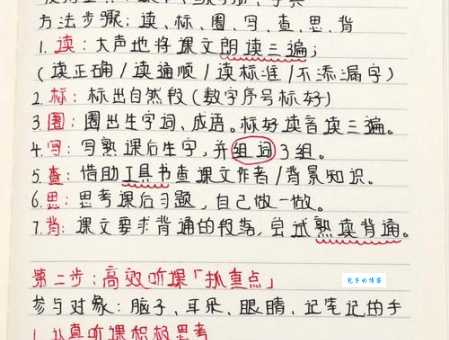 方法步骤：读、标、圈、写、查、思、背
1. 读：大声地将课文朗读三遍；
（读正确/读通顺/读标准/不添漏字）
2. 标：标出自然段（数字序号标好）
3. 圈：圈出生字词、成语。标好读音读三遍。
4. 写：写熟课后生字，并组词3组。
5. 查：借助工具书查课文作者/背景知识。
6. 思：思考课后习题，自己做一做。
7. 背：课文要求背诵的段落，尝试熟读背诵。
第二步：高效听课「抓重点」
参与对象：脑子、耳朵、眼睛、记笔记的手
1. 认真听课积极思考